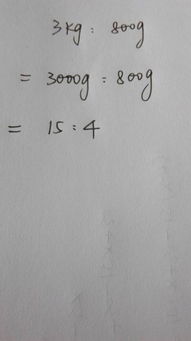 3kg : 800g
= 3000g : 800g
= 15 : 4